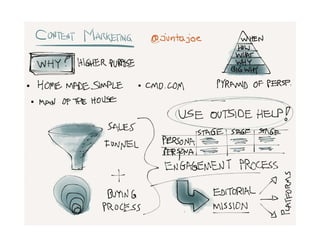 CONTENT MARKETING @juntajoe
WHY? HIGHER PURPOSE
• HOME MADE SIMPLE • CMO.COM
• MAN OF THE HOUSE
WHEN
HOW
WHAT
WHY
PYRAMID OF PERSP.
USE OUTSIDE HELP!
SALES
FUNNEL
+
BUYING
PROCESS
STAGE STAGE STAGE
PERSONA
PERSONA
ENGAGEMENT PROCESS
EDITORIAL
MISSION
PLATFORMS